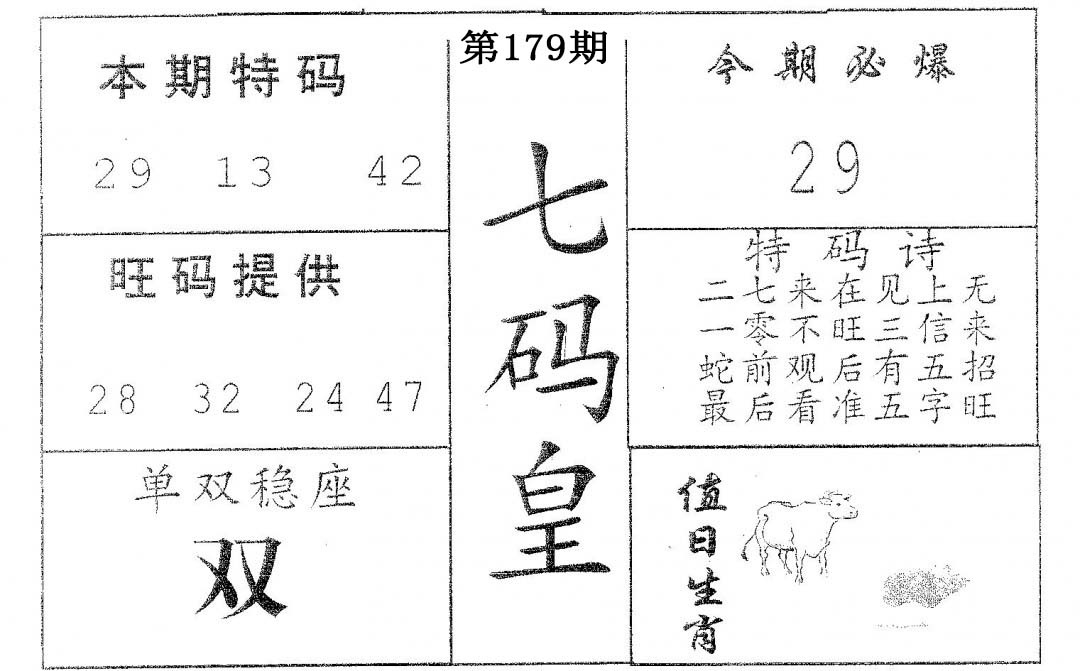 第179期
七码皇
本期特码
29 13 42
旺码提供
28 32 24 47
单双稳座
双
今期必爆
29
特码诗
二七来在见上无
一零不旺三信来
蛇前观后有五招
最后看准五字旺
值日生肖